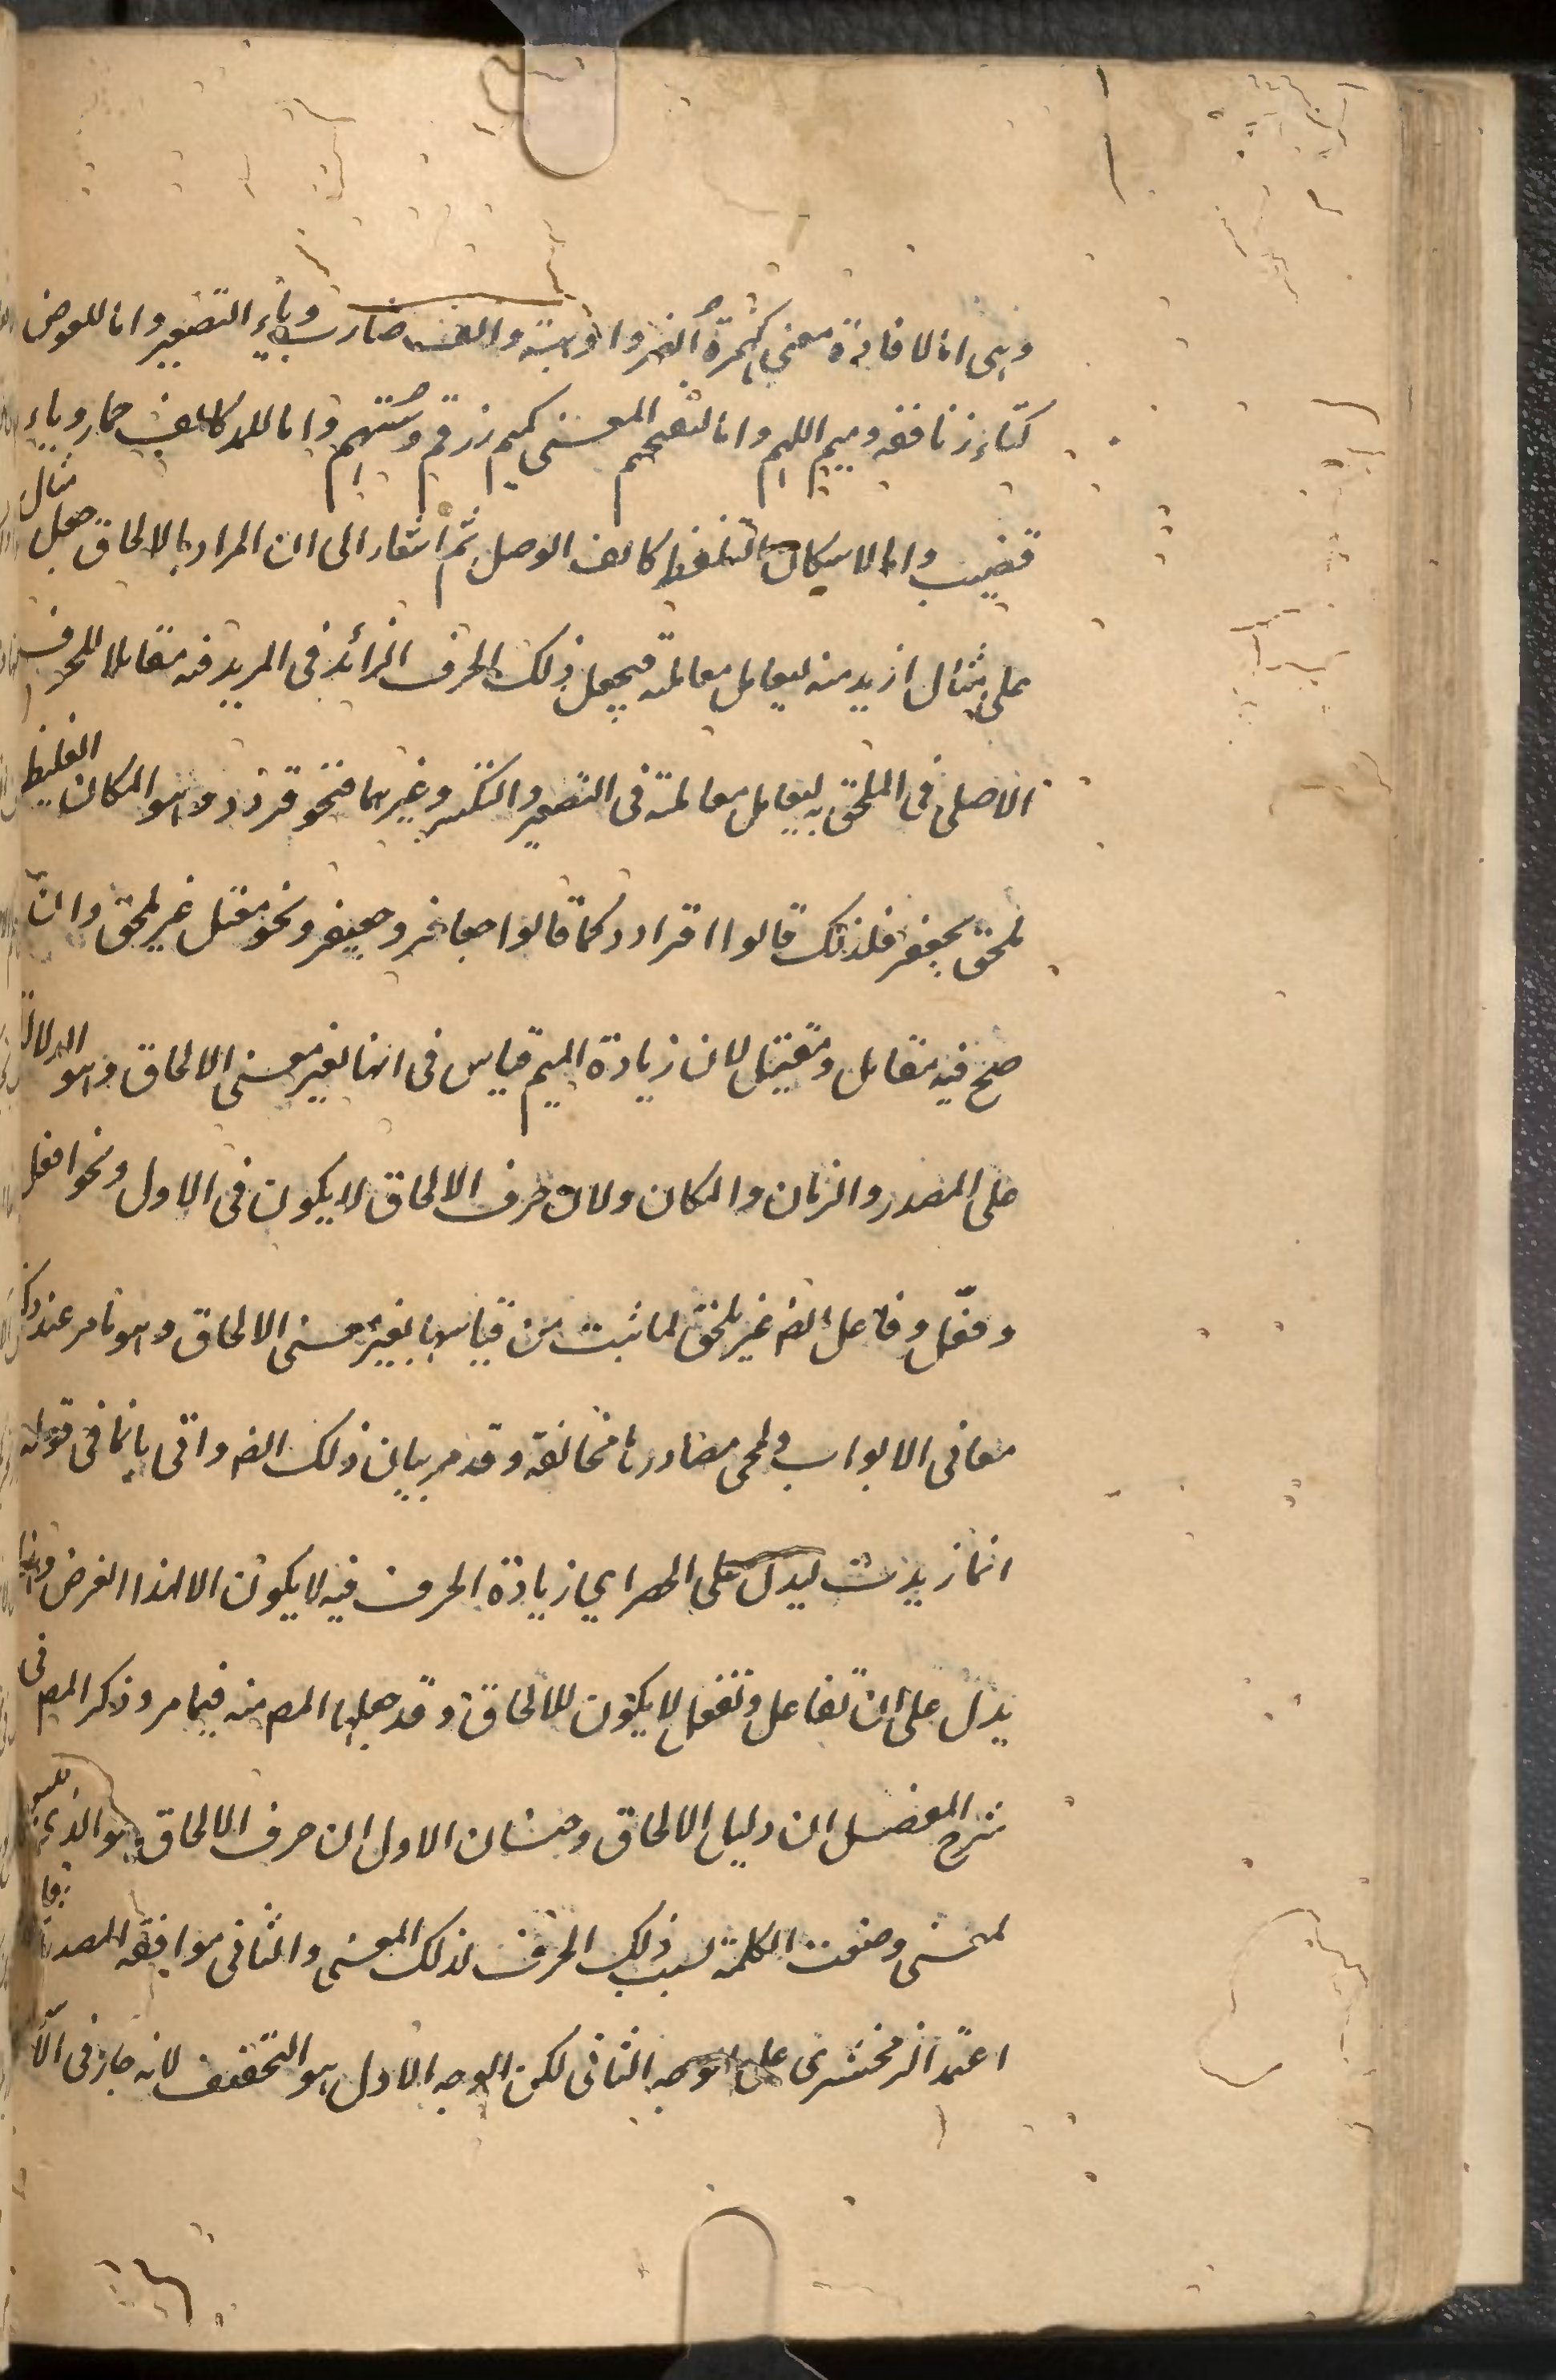 وهى اما لافادة معنى كهمزة اضرب والف ضارب وياء التصغير واما للعوض
كتاء زنادقة وميم اللهم واما لتفخيم المعنى كميم زرقم وستهم واما للمد كالف حمار وياء
قضيب واما لامكان التلفظ كالف الوصل ثم اشار الى ان المراد بالالحاق جعل مثال
على مثال ازيد منه ليعامل معاملته فيجعل ذلك الحرف الزائد فى المزيد فيه مقابلا للحرف
الاصلى فى الملحق به ليعامل معاملته فى التصغير والتكسير وغيرهما فنحو قردد وهو المكان الغليظ
ملحق بجعفر فلذلك قالوا قرادد كما قالوا جعافر وجعيفر ونحو مقتل غير ملحق وان
صح فيه مقاتل ومقيتل لان زيادة الميم قياس فى انها لغير معنى الالحاق وهو الدلالة
على المصدر والزمان والمكان ولان حرف الالحاق لا يكون فى الاول ونحو افعل
وفعّل وفاعل ايضا غير ملحق لما ثبت من قياسها لغير معنى الالحاق وهو ما مر عند ذكر
معانى الابواب ولمجى مصادرها مخالفة وقد مر بيان ذلك ايضا واتى بانما فى قوله
انما زيدت ليدل على الحصر اي زيادة الحرف فيه لا يكون الا لهذا الغرض وهذا
يدل على ان تفاعل وتفعل لا يكون للالحاق وقد جعلها المص منه فيما مر وذكر المص فى
شرح المفصل ان دليل الالحاق وجهان الاول ان حرف الالحاق هو الذى ليس
لمعنى وضعت الكلمة بسبب ذلك الحرف لذلك المعنى والثانى موافقة المصدر
اعتمد الزمخشرى على الوجه الثانى لكن الوجه الاول هو التحقيق لانه جار فى